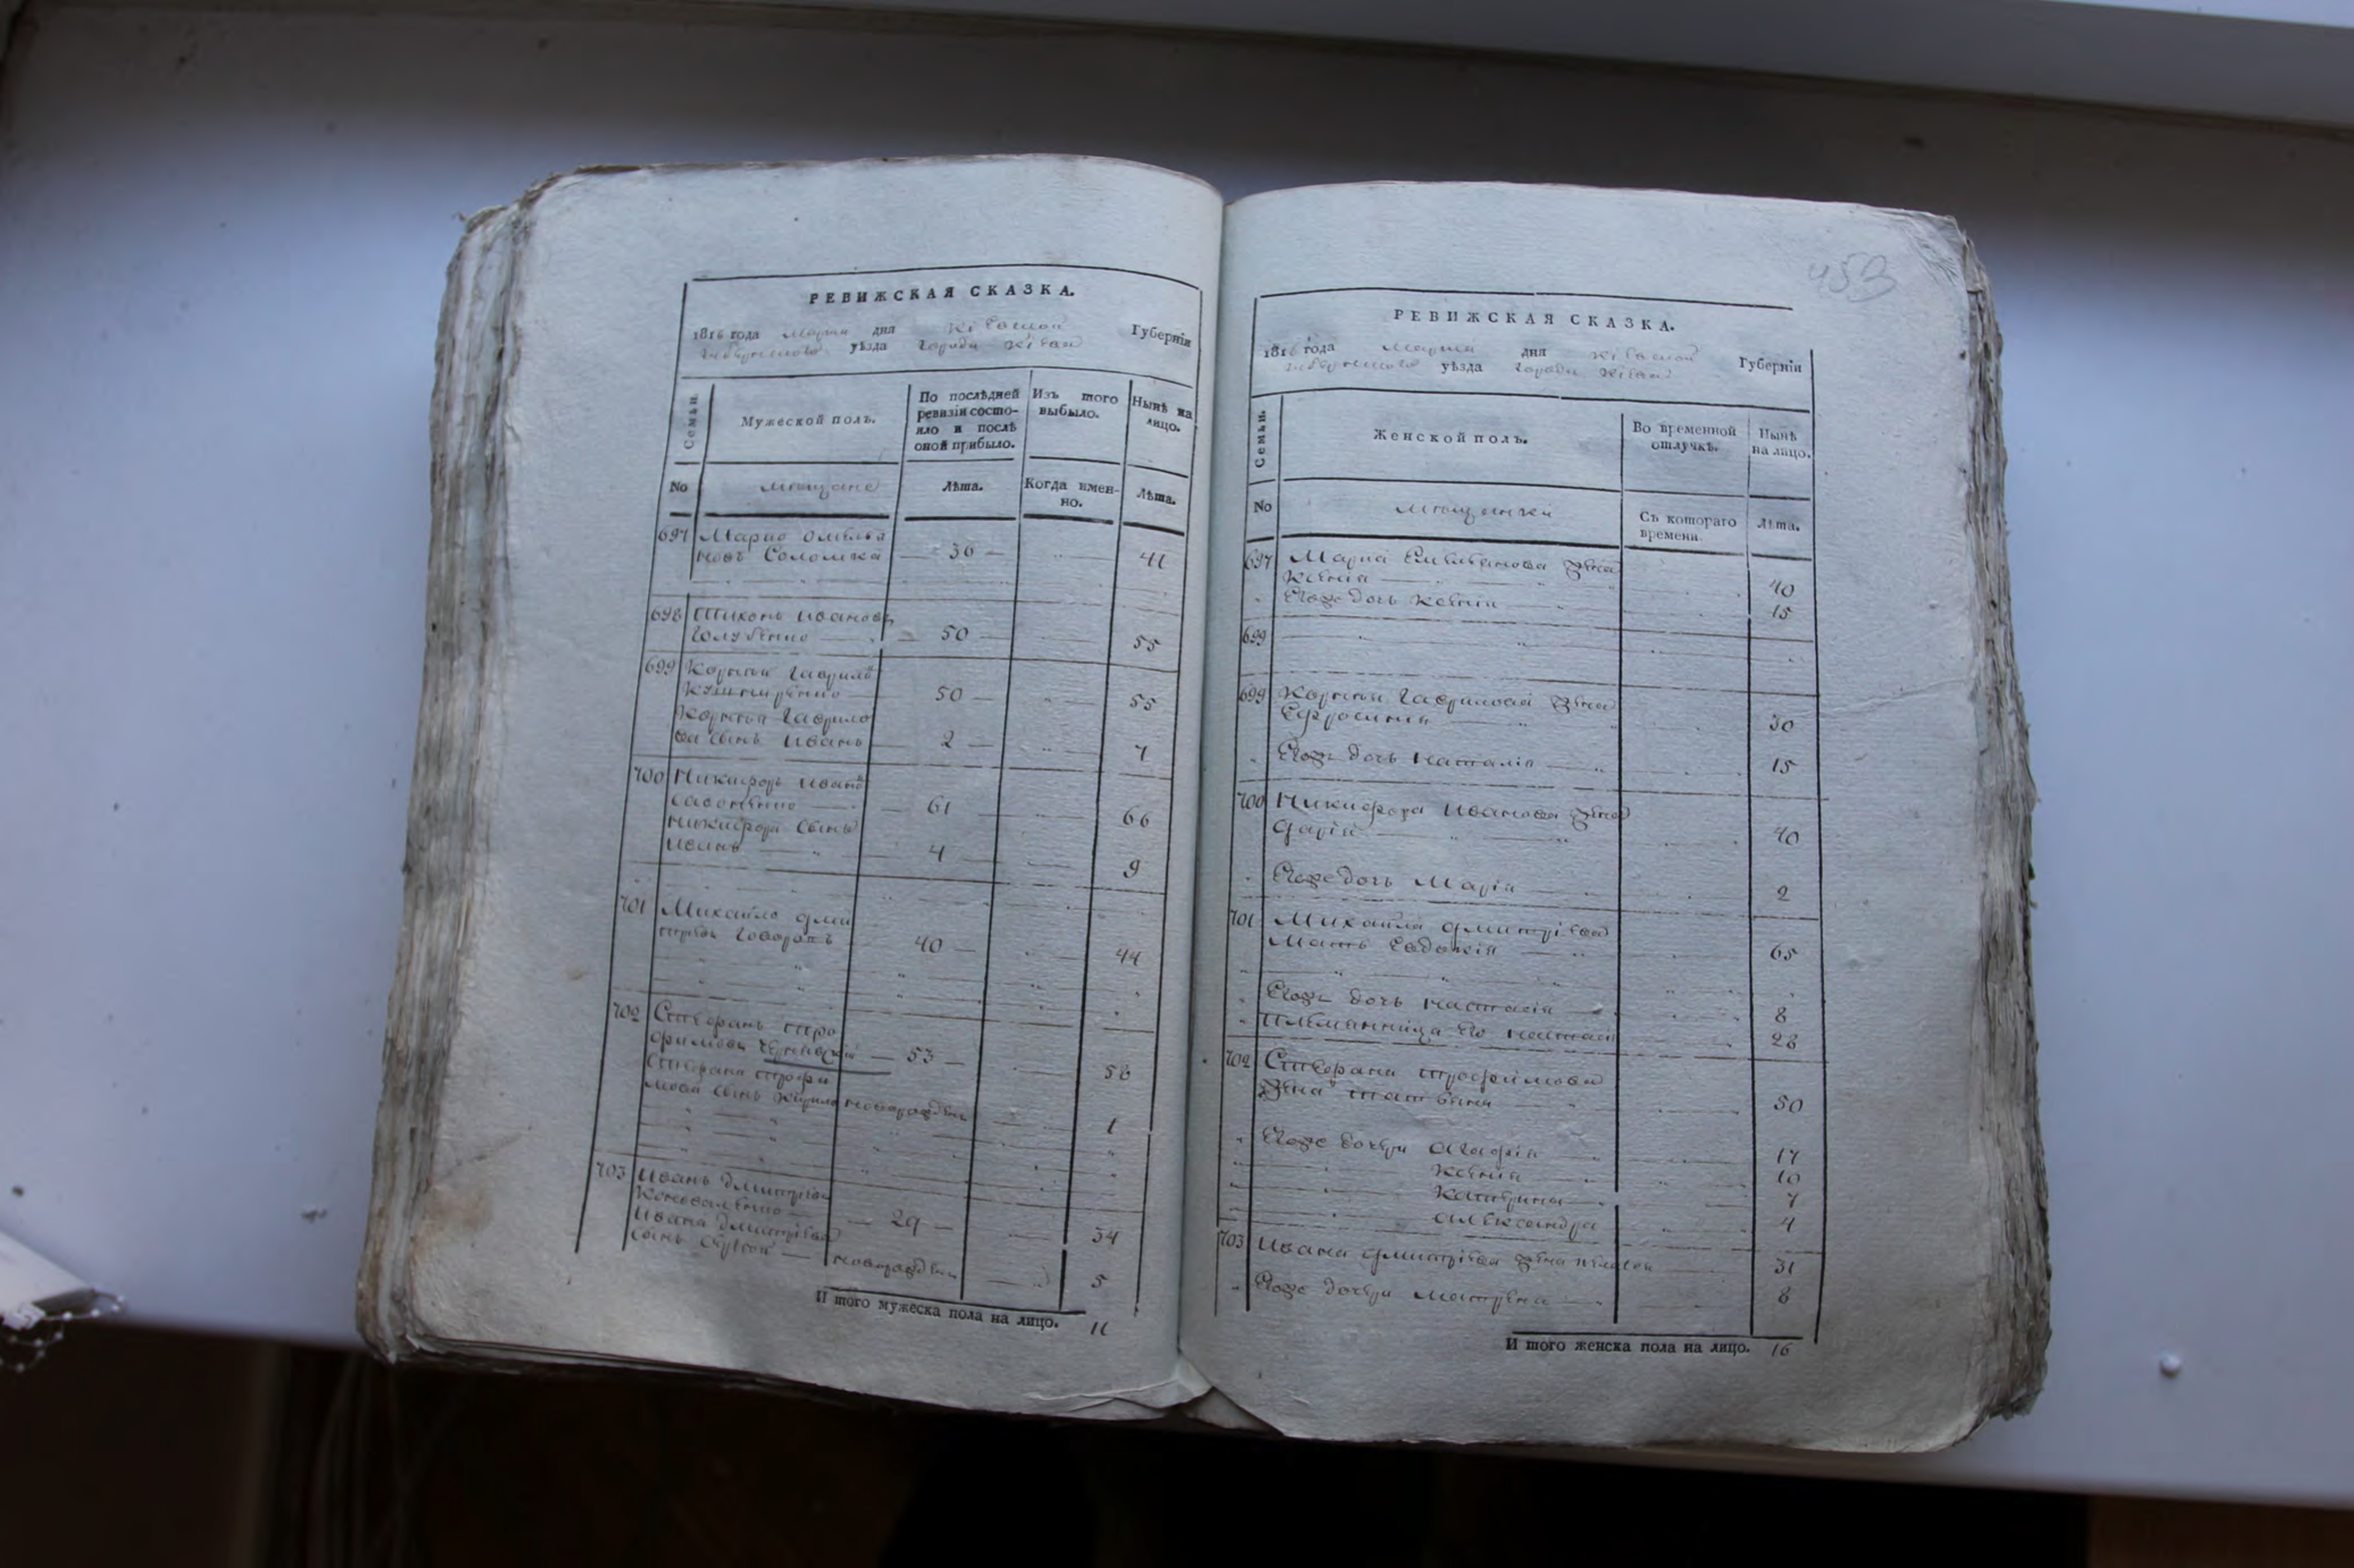 РЕВИЖСКАЯ СКАЗКА.
1816 года марта дня Кіевской Губерніи
уѣзда города Кіева
Семьи.
Мужеской полъ.
По послѣдней ревизіи состояло и послѣ оной прибыло.
Изъ того выбыло.
Нынѣ на лицо.
No
мещане
Лѣта.
Когда именно.
Лѣта.
697 Марко Омелья
новъ Соломка 36 41
698 Тихонъ Ивановъ
Голубенко 50 55
699 Корней Гаврило
Кушниренко 50 55
Корнея Гаврило
ва сынъ Иванъ 2 7
700 Никифоръ Ивано
61 66
Никифора сынъ
Иванъ 4 9
701 Михайло Дми
тріевъ 40 44
702 Стефанъ Тро
фимовъ 53 58
Стефана Трофи
мова сынъ Кирило новорожденъ 1
703 Иванъ Дмитріевъ
Коноваленко 29 34
Ивана Дмитріева
сынъ Сергѣй новорожденъ 5
И того мужеска пола на лицо. 11
453
РЕВИЖСКАЯ СКАЗКА.
1816 года марта дня Кіевской Губерніи
уѣзда города Кіева
Семьи.
Женской полъ.
Во временной отлучкѣ.
Нынѣ на лицо.
No
мещанки
Съ котораго времени.
Лѣта.
697 Марка Емельянова жена
Ксенія 40
Егоже дочь Ксенія 15
699
699 Корнея Гаврилова жена
Ефросинія 30
Егожъ дочь Наталія 15
700 Никифора Иванова жена
Дарія 40
Егоже дочь Марія 2
701 Михайла Дмитріева
мать Евдокія 65
Егожъ дочь Настасія 8
племянница его 28
702 Стефана Трофимова
жена Татьяна 50
Егоже дочери Агафія 17
Ксенія 10
Катерина 7
Александра 4
703 Ивана Дмитріева жена 31
Егоже дочери Матрена 8
И того женска пола на лицо. 16